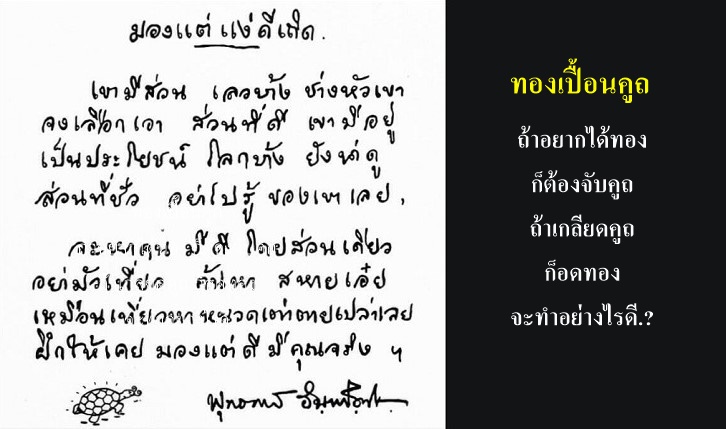 มองแต่ แง่ดีเถิด.
เขามีส่วน เลวบ้าง ช่างหัวเขา
จงเลือกเอา ส่วนที่ดี เขามีอยู่
เป็นประโยชน์ โลกบ้าง ยังน่าดู
ส่วนที่ชั่ว อย่าไปรู้ ของเขาเลย,
จะหาคน มีดี โดยส่วนเดียว
อย่ามัวเที่ยว ค้นหา สหายเอ๋ย
เหมือนเที่ยวหา หนวดเต่า ตายเปล่าเลย
ฝึกให้เคย มองแต่ดี มีคุณจริง ฯ
พุทธทาส อินทปัญโญ
ทองเปื้อนคูถ
ถ้าอยากได้ทอง
ก็ต้องจับคูถ
ถ้าเกลียดคูถ
ก็อดทอง
จะทำอย่างไรดี.?